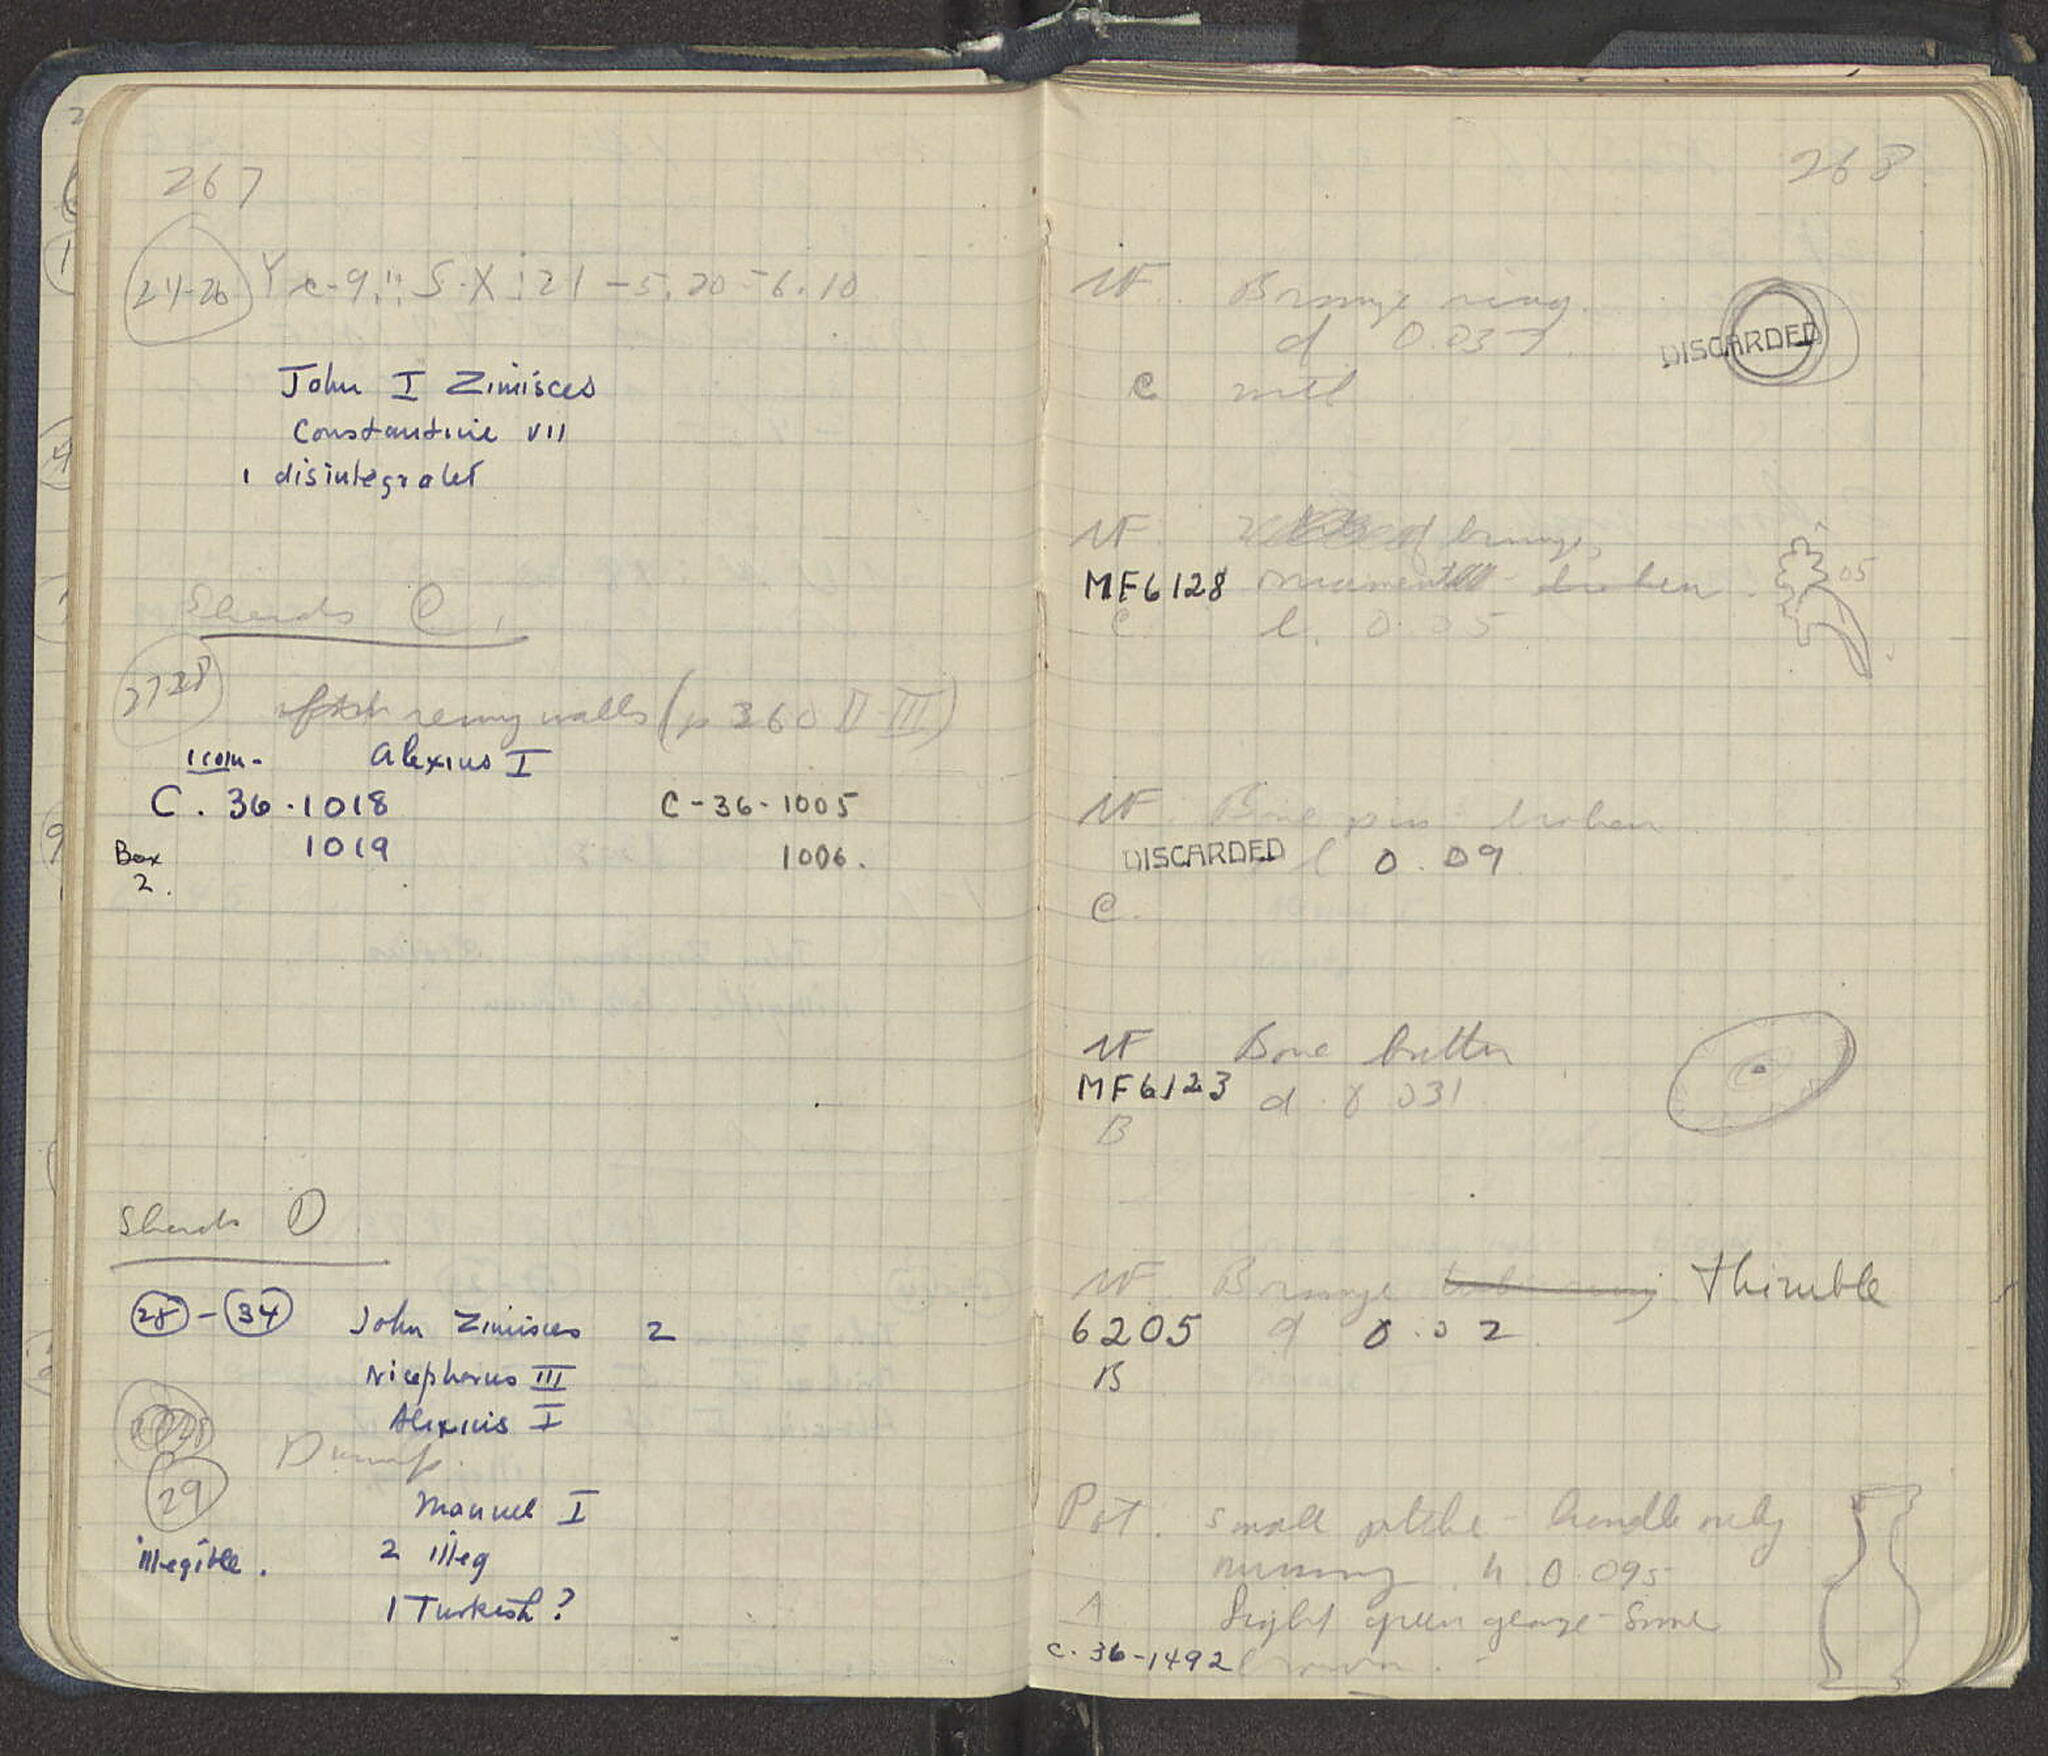 267
24-26
John I Zimisces
Constantine VII
1 disintegrated
Sherds C.
27 28
walls (p 360 II-III)
1 coin- Alexius I
C. 36-1018 C-36-1005
1019 1006.
Box
2.
Sherds D
28 - 34 John Zimisces 2
Nicephorus III
Alexius I
Dump.
29
Manuel I
illegible. 2 illeg
1 Turkish?
268
MF. Bronze ring.
DISCARDED
d 0.037
C
MF. bronze,
MF6128 broken. 05
C. l. 0.05
MF. Bone pin broken
DISCARDED l 0.09
C.
MF Bone button
MF6123 d. 0.031
B
MF. Bronze thimble
6205 d 0.02
B
Pot. small pitcher - handle only
missing. h. 0.095
A light green glaze - some
C. 36-1492 brown.